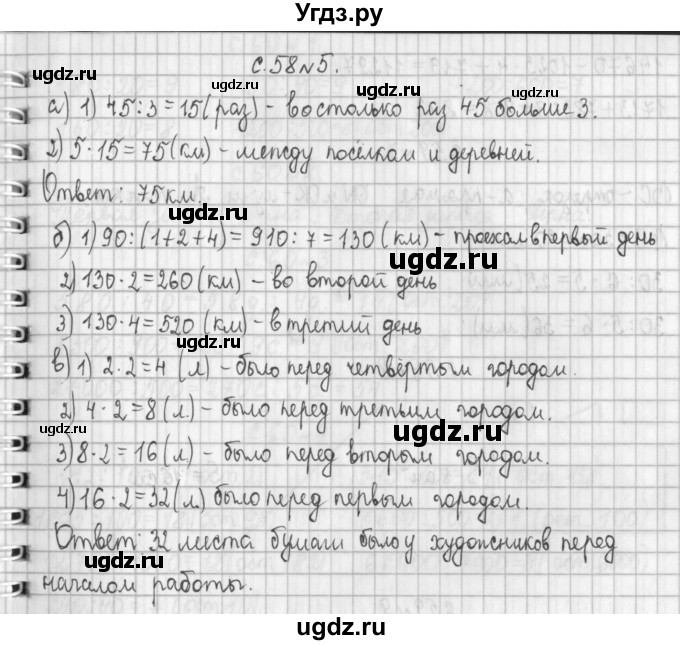 Угдз.ру
с.58 №5.
а) 1) 45:3=15(раз) - во столько раз 45 больше 3.
2) 5·15=75(км) - между посёлком и деревней.
Ответ: 75км.
б) 1) 90:(1+2+4)=910:7=130(км) - проехал в первый день
2) 130·2=260(км) - во второй день
3) 130·4=520(км) - в третий день
в) 1) 2·2=4 (л) - было перед четвёртым городом.
2) 4·2=8(л) - было перед третьим городом.
3) 8·2=16(л) - было перед вторым городом.
4) 16·2=32(л) было перед первым городом.
Ответ: 32 листа бумаги было у художников перед
началом работы.
ugdz.ru
ugdz.ru
ugdz.ru
ugdz.ru
ugdz.ru
ugdz.ru
ugdz.ru
ugdz.ru
ugdz.ru
ugdz.ru
ugdz.ru
ugdz.ru
ugdz.ru